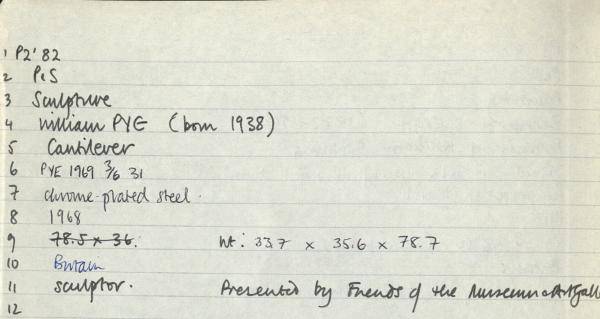 1 P2'82
2 P&S
3 Sculpture
4 William PYE (born 1938)
5 Cantilever
6 PYE 1969 3/6 31
7 chrome-plated steel.
8 1968
9 78.5 x 36. ht: 33.7 x 35.6 x 78.7
10 Britain
11 sculptor. Presented by Friends of the Museum & Art Gall
12